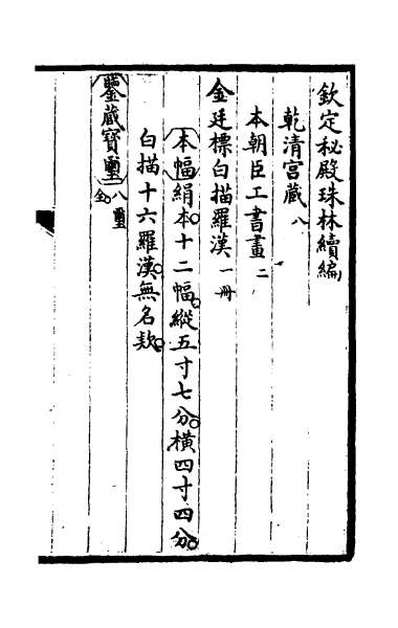 欽定秘殿珠林續編
乾清宫藏八
本朝臣工書畫二
金廷標白描羅漢一冊
本幅絹本十二幅縱五寸七分橫四寸四分
白描十六羅漢無名款
鑒藏寶璽八璽全